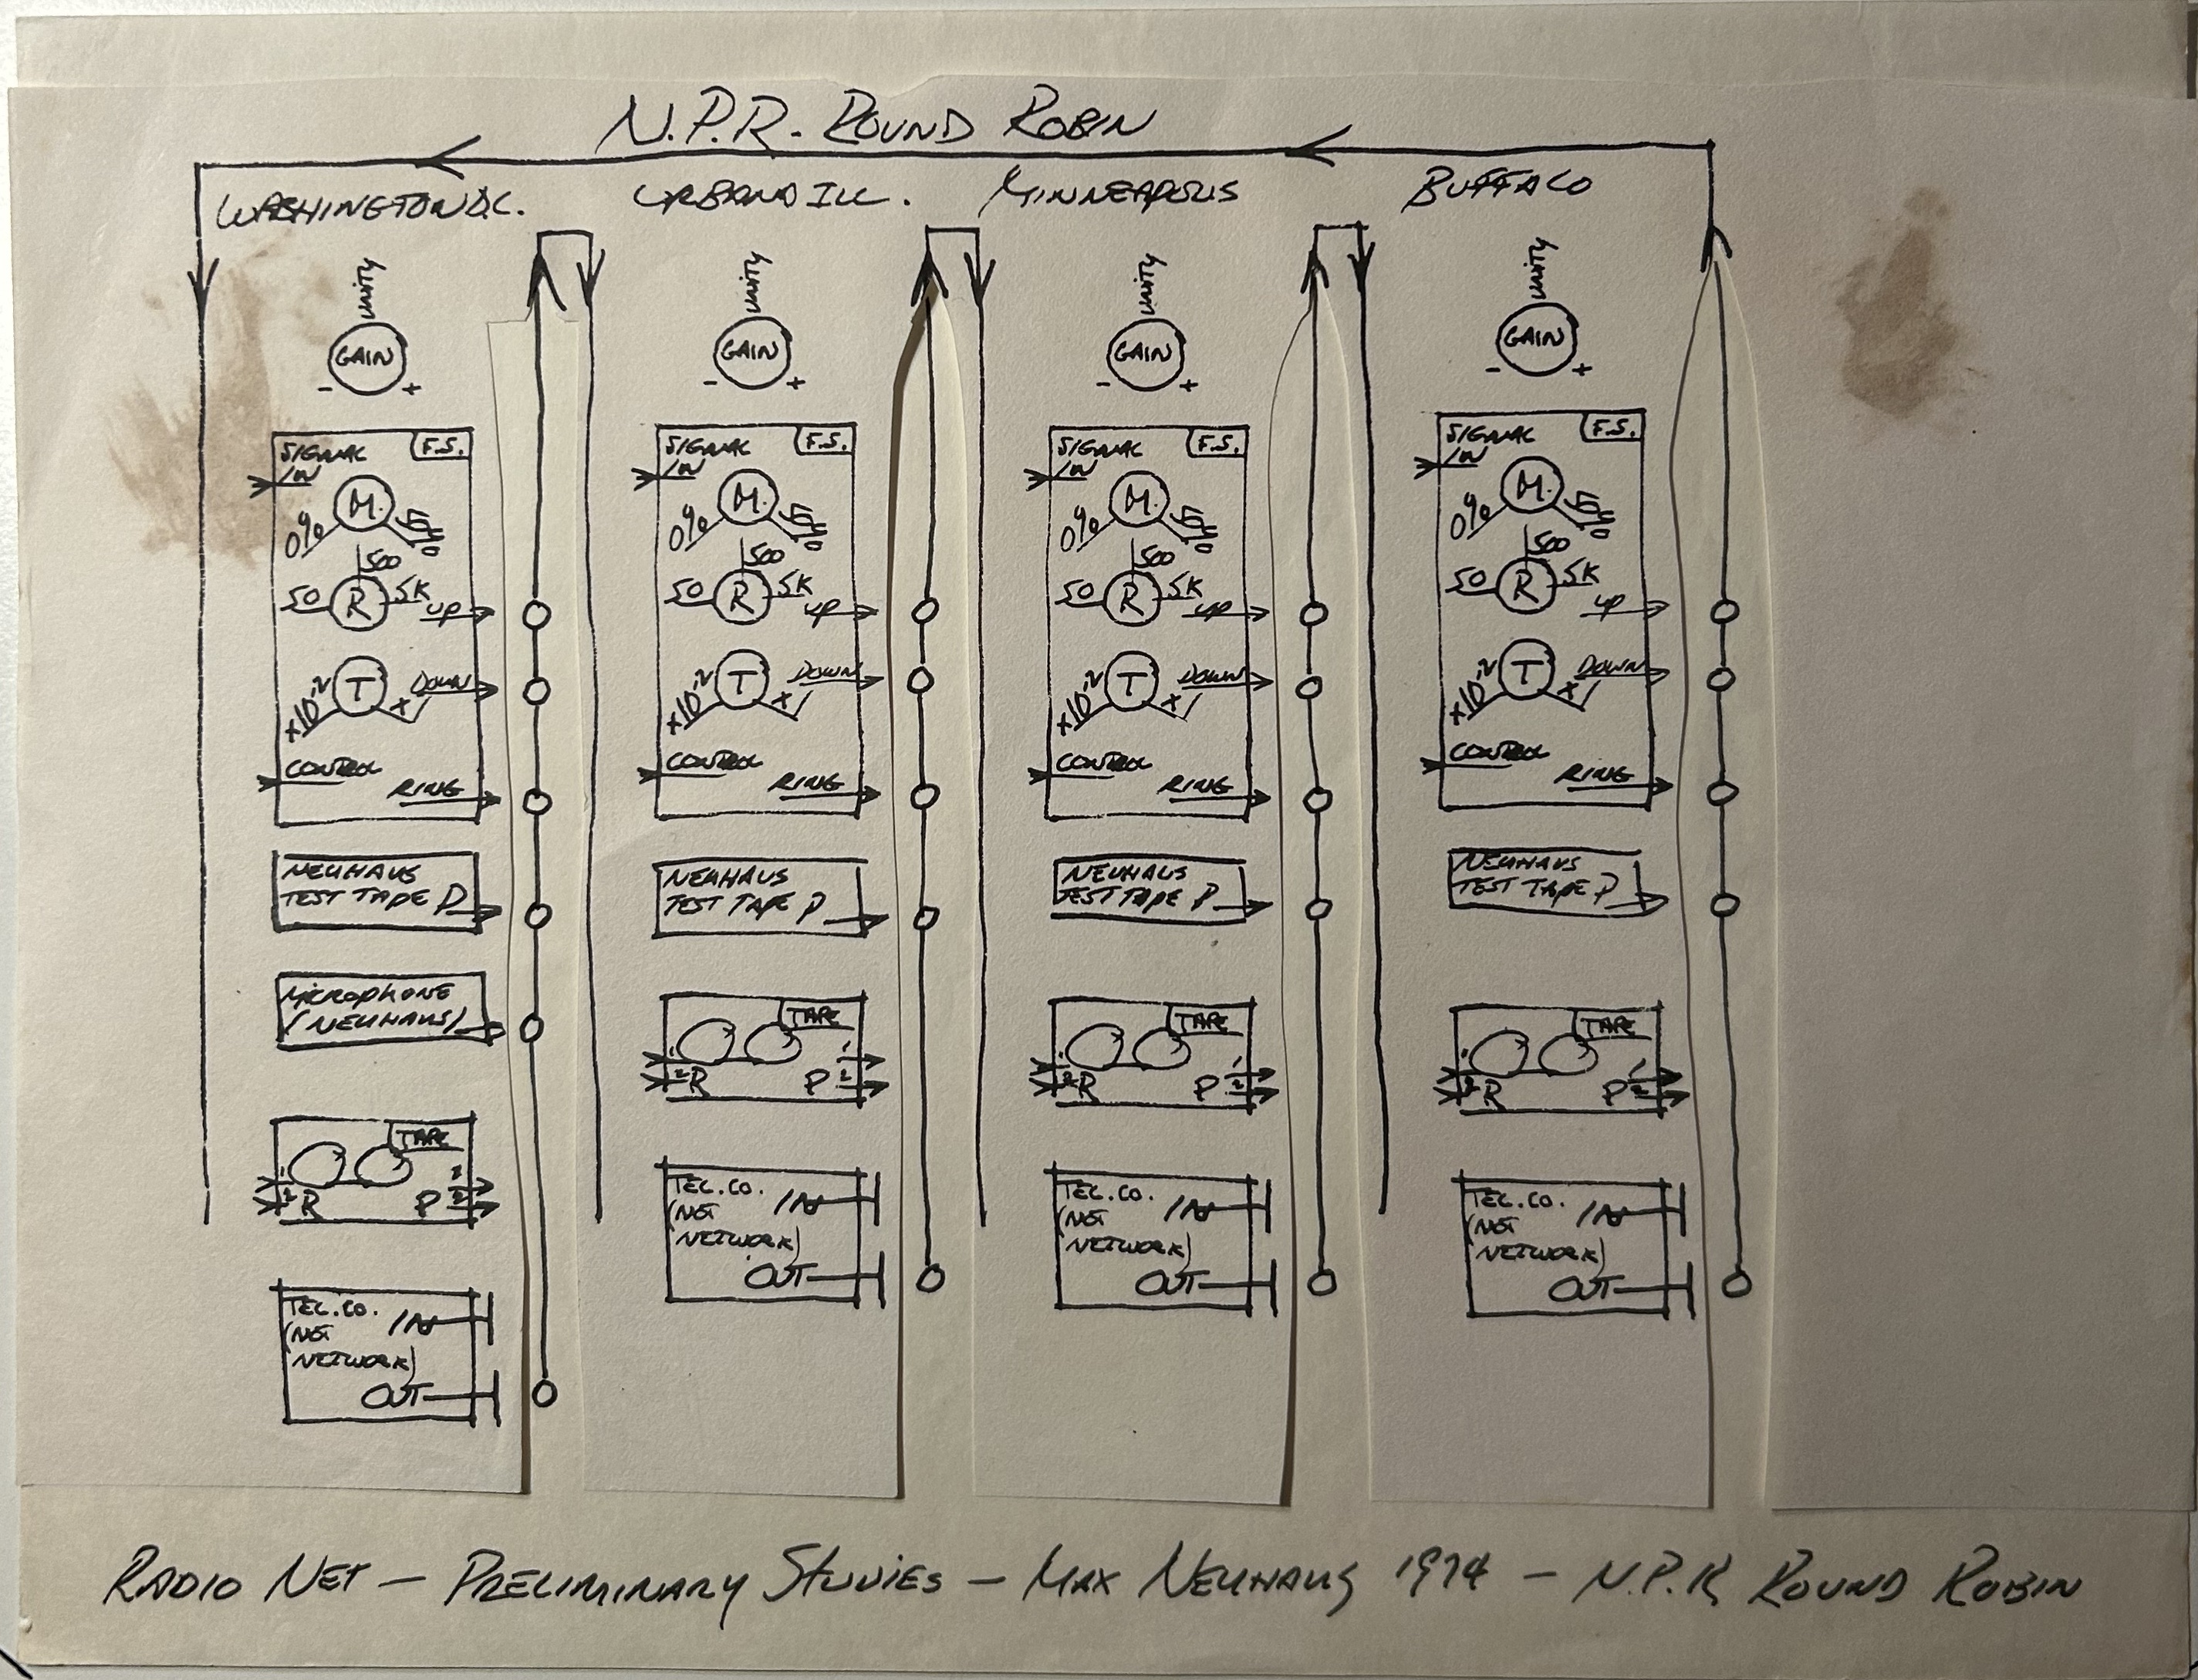 N.P.R. ROUND ROBIN
WASHINGTON D.C.
URBANA ILL.
MINNEAPOLIS
BUFFALO
unity
GAIN
- +
SIGNAL F.S.
IN
M.
0%
500
50 R 5K
UP
T DOWN
X10⁻² X1
CONTROL
RING
NEUHAUS
TEST TAPE P
MICROPHONE
(NEUHAUS)
TAPE
1
2 R P 1
2
TEL. CO.
(NOT IN
NETWORK)
OUT
unity
GAIN
- +
SIGNAL F.S.
IN
M.
0%
500
50 R 5K
UP
T DOWN
X10⁻² X1
CONTROL
RING
NEUHAUS
TEST TAPE P
TAPE
1
2 R P 1
2
TEL. CO.
(NOT IN
NETWORK)
OUT
unity
GAIN
- +
SIGNAL F.S.
IN
M.
0%
500
50 R 5K
UP
T DOWN
X10⁻² X1
CONTROL
RING
NEUHAUS
TEST TAPE P
TAPE
1
2 R P 1
2
TEL. CO.
(NOT IN
NETWORK)
OUT
unity
GAIN
- +
SIGNAL F.S.
IN
M.
0%
500
50 R 5K
UP
T DOWN
X10⁻² X1
CONTROL
RING
NEUHAUS
TEST TAPE P
TAPE
1
2 R P 1
2
TEL. CO.
(NOT IN
NETWORK)
OUT
RADIO NET — PRELIMINARY STUDIES — MAX NEUHAUS 1974 — N.P.R ROUND ROBIN